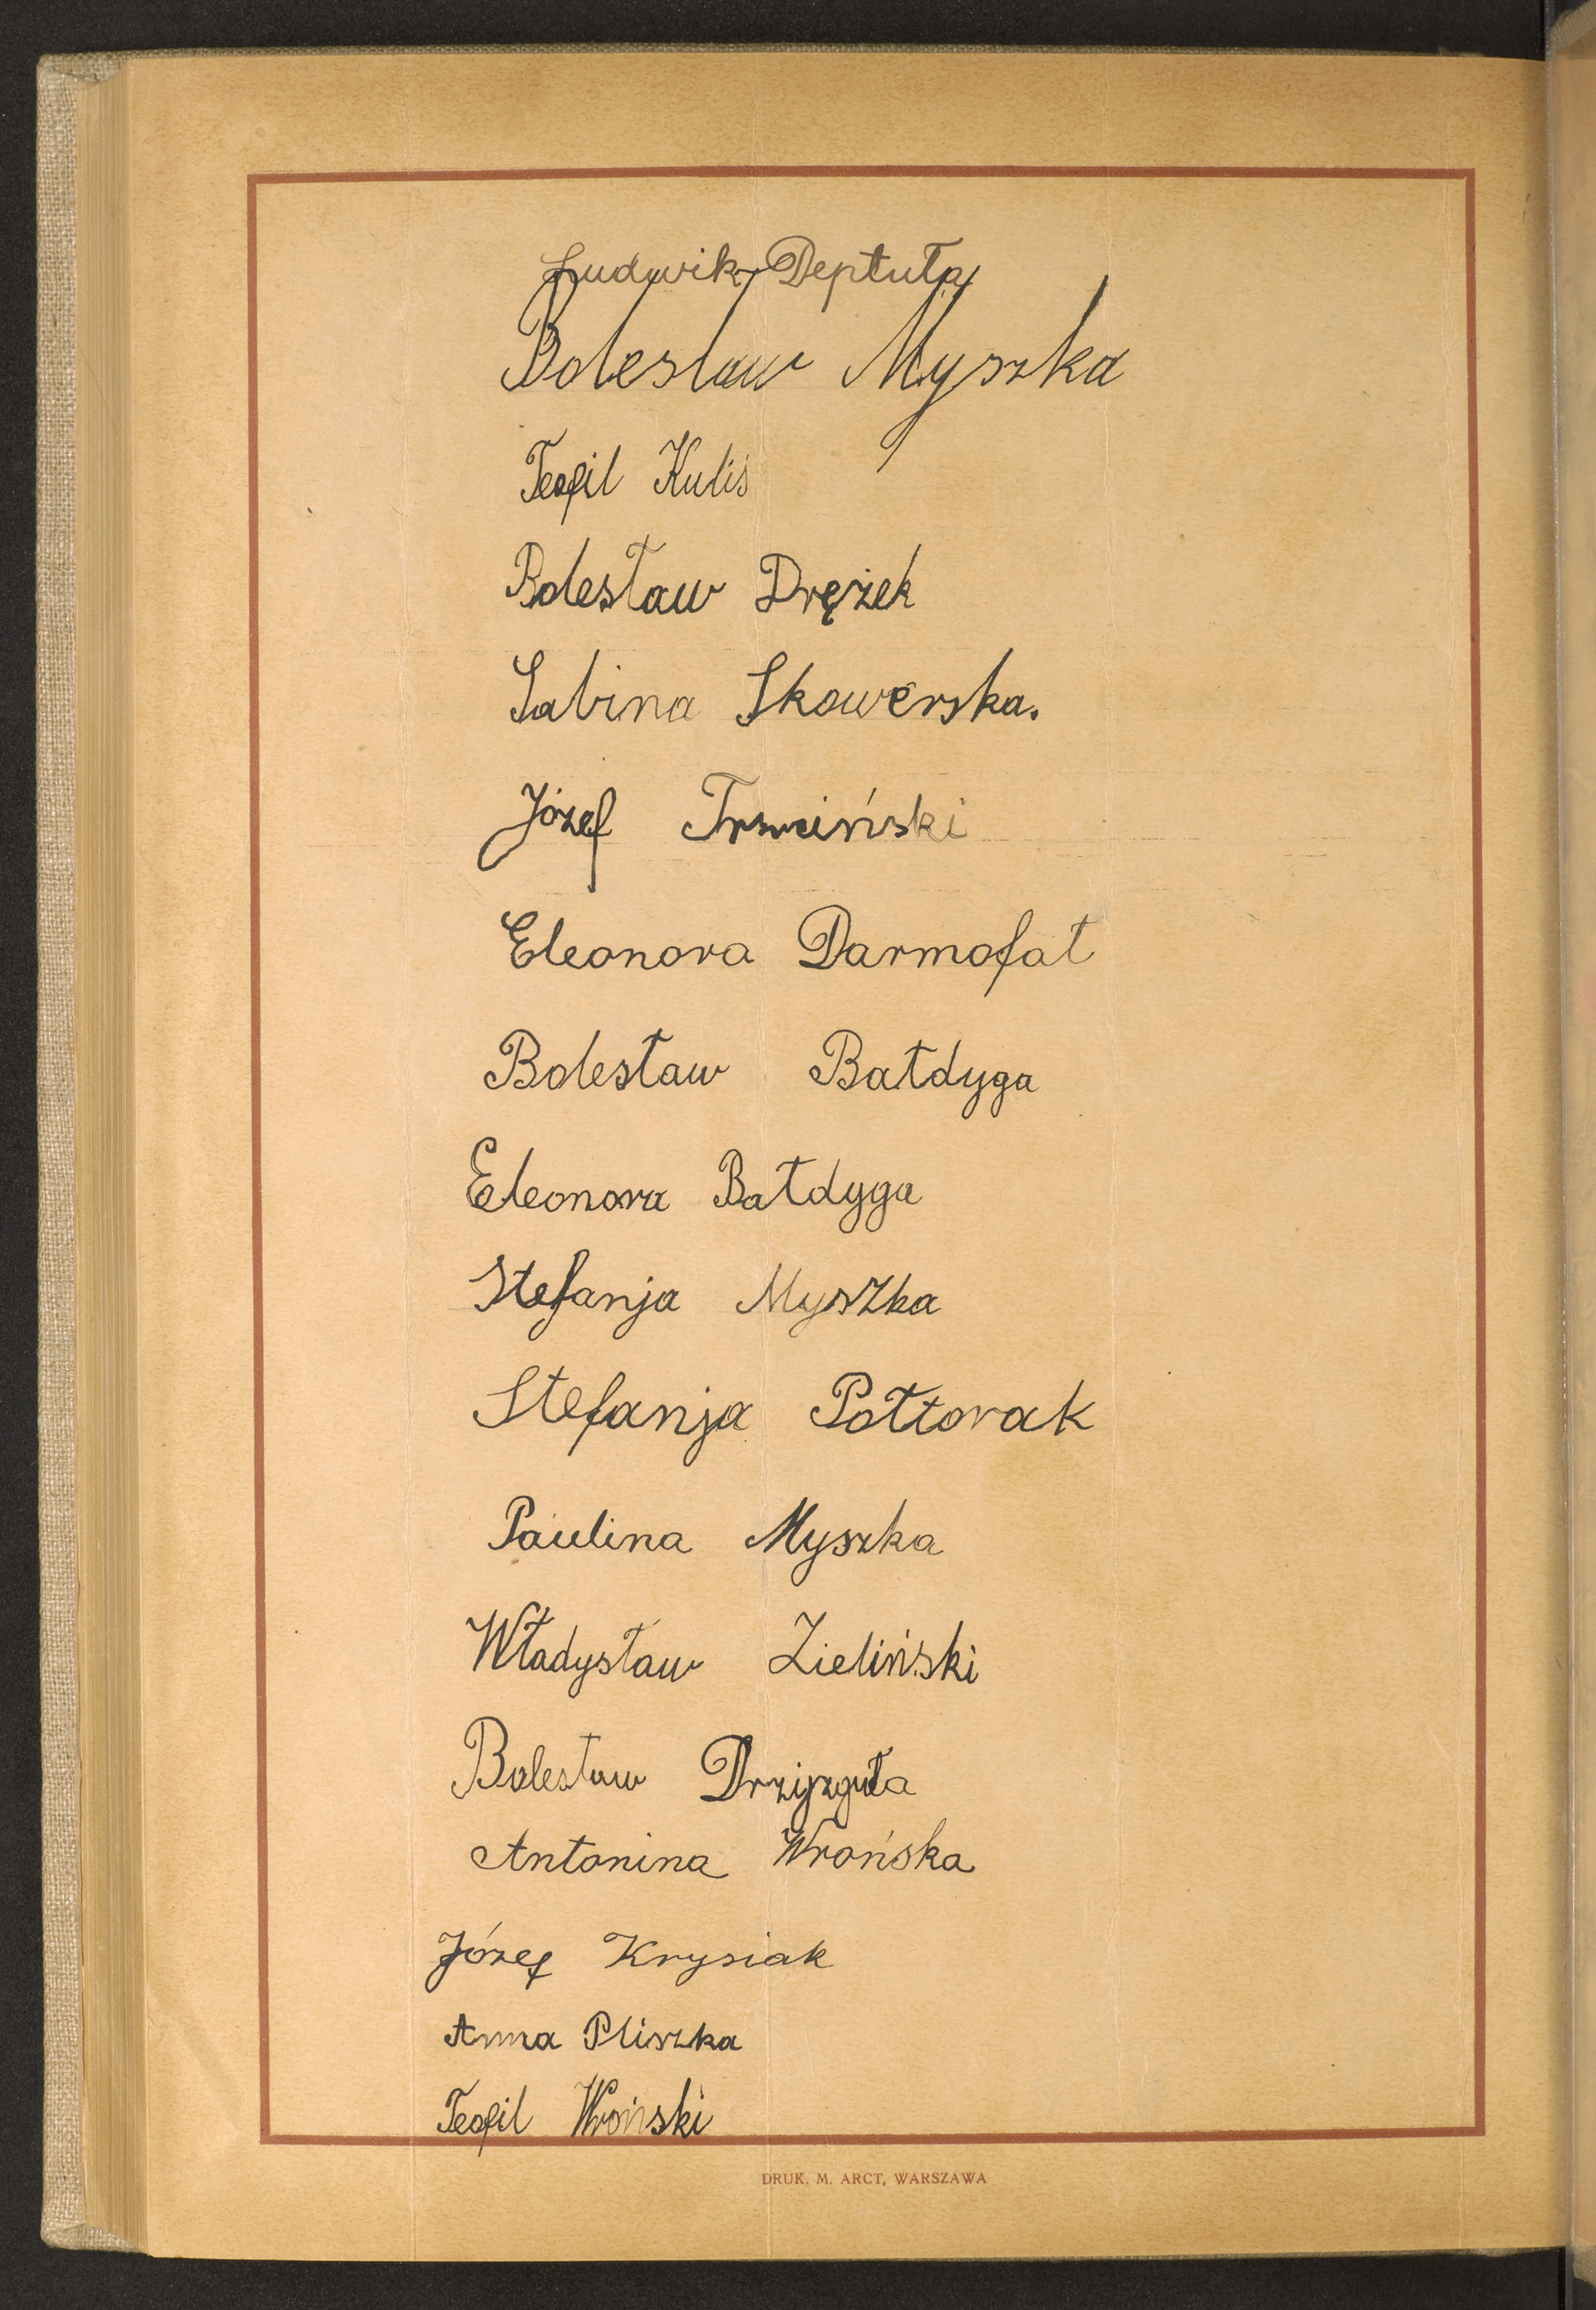 Ludwik Deptuła
Bolesław Myszka
Teofil Kuliś
Bolesław Drężek
Sabina Skowerska.
Józef Trzciński
Eleonora Darmofał
Bolesław Bałdyga
Eleonora Bałdyga
Stefanja Myszka
Stefanja Połtorak
Paulina Myszka
Władysław Zieliński
Bolesław
Antonina Wrońska
Józef Krysiak
Anna Pliszka
Teofil Wroński
DRUK. M. ARCT, WARSZAWA